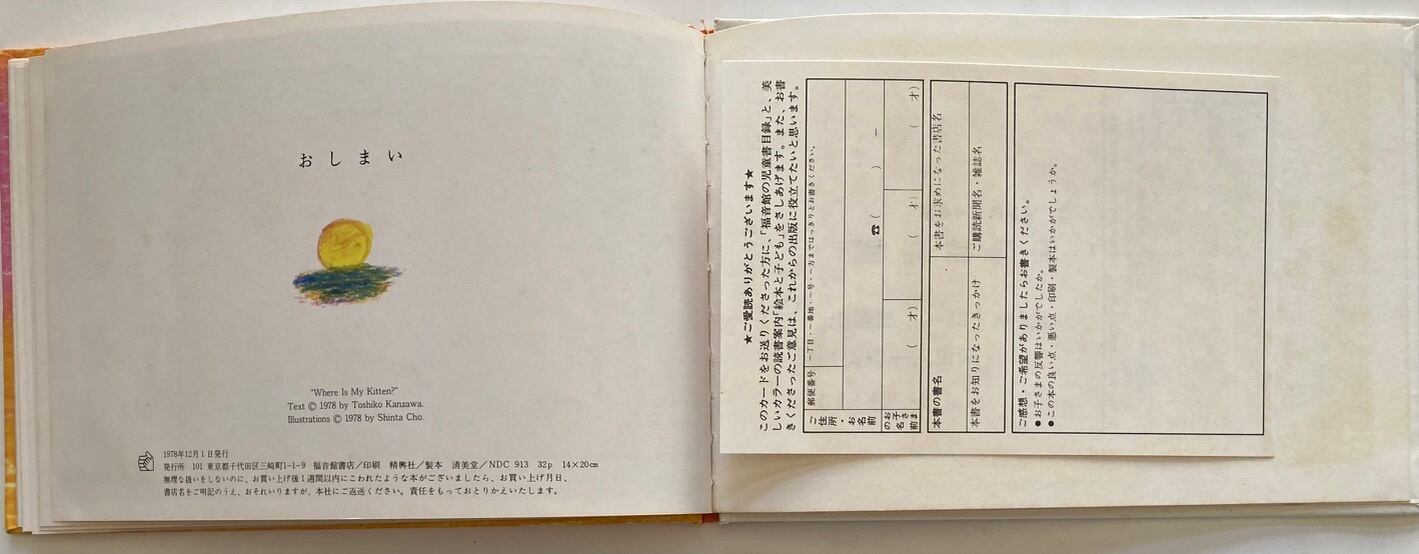 おしまい
“Where Is My Kitten?”
Text © 1978 by Toshiko Kanzawa.
Illustrations © 1978 by Shinta Cho.
1978年12月1日発行
発行所 101 東京都千代田区三崎町1-1-9 福音館書店/印刷 精興社/製本 清美堂/NDC 913 32p 14×20cm
無理な扱いをしないのに、お買い上げ後1週間以内にこわれたような本がございましたら、お買い上げ月日、
書店名をご明記のうえ、おそれいりますが、本社にご返送ください。責任をもっておとりかえいたします。
★ご愛読ありがとうございます★
このカードをお送りくださった方に、「福音館の児童書目録」と、美
しいカラーの読書案内「絵本と子ども」をさしあげます。また、お書
きくださったご意見は、これからの出版に役立てたいと思います。
ご住所・お名前
郵便番号 ―丁目・―番地・―号・―方まではっきりとお書きください。
☎( ) ―
お子さまのお名前
( 才) ( 才) ( 才)
本書の書名
本書をお求めになった書店名
本書をお知りになったきっかけ
ご購読新聞名・雑誌名
ご感想・ご希望がありましたらお書きください。
●お子さまの反響はいかがでしたか。
●この本の良い点・悪い点・印刷・製本はいかがでしょうか。